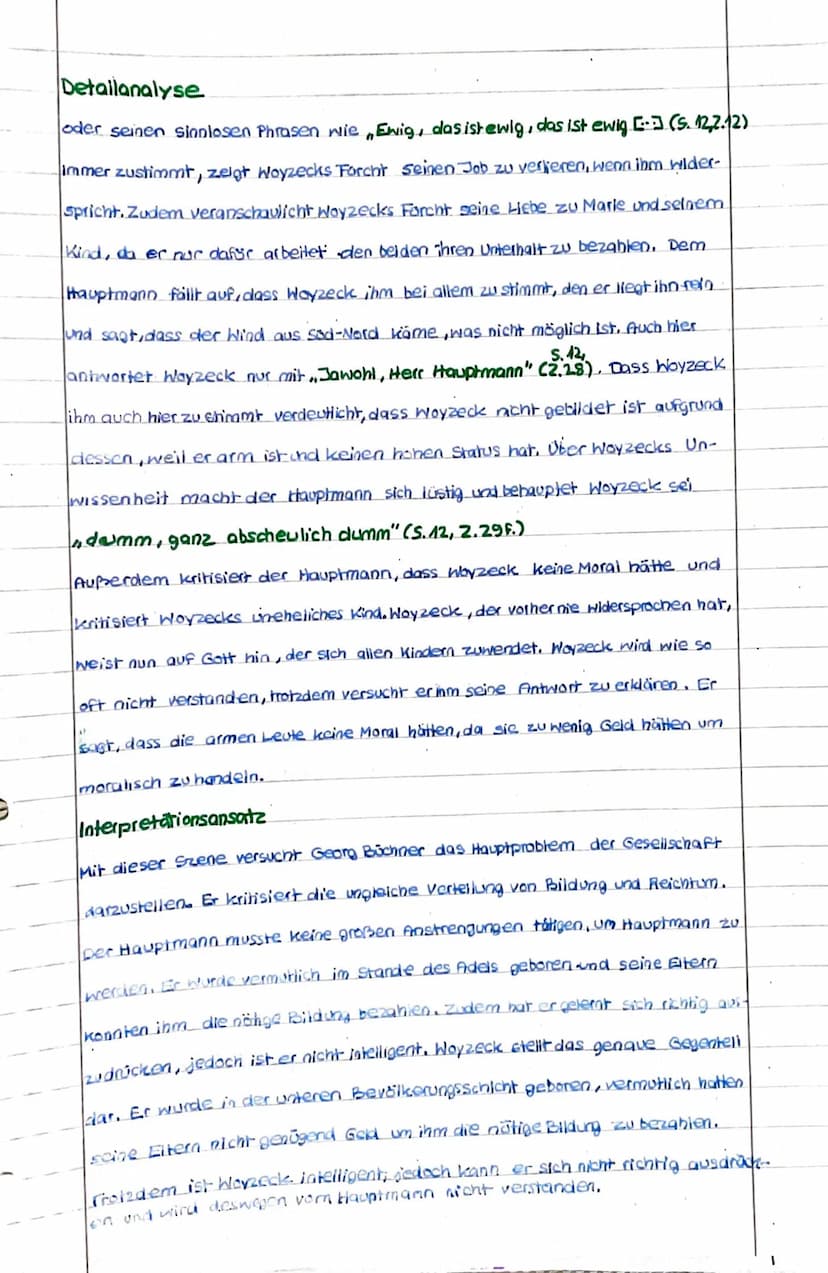 Detailanalyse
oder seinen sinnlosen Phrasen wie „Ewig, das ist ewig, das ist ewig [..] (S. 12, Z. 12)
immer zustimmt, zeigt Woyzecks Furcht seinen Job zu verlieren, wenn ihm wider-
spricht. Zudem veranschaulicht Woyzecks Furcht seine Liebe zu Marie und seinem
Kind, da er nur dafür arbeitet den beiden ihren Unterhalt zu bezahlen. Dem
Hauptmann fällt auf, dass Woyzeck ihm bei allem zustimmt, den er legt ihn rein
und sagt, dass der Wind aus Süd-Nord käme, was nicht möglich ist. Auch hier
antwortet Woyzeck nur mit „Jawohl, Herr Hauptmann" (S. 12, Z. 28). Dass Woyzeck
ihm auch hier zustimmt verdeutlicht, dass Woyzeck nicht gebildet ist aufgrund
dessen, weil er arm ist und keinen hohen Status hat. Über Woyzecks Un-
wissenheit macht der Hauptmann sich lüstig und behauptet Woyzeck sei
„dumm, ganz abscheulich dumm" (S. 12, Z. 29f.)
Außerdem kritisiert der Hauptmann, dass Woyzeck keine Moral hätte und
kritisiert Woyzecks uneheliches Kind. Woyzeck, der vorher nie widersprochen hat,
weist nun auf Gott hin, der sich allen Kindern zuwendet. Woyzeck wird wie so
oft nicht verstanden, trotzdem versucht er ihm seine Antwort zu erklären. Er
sagt, dass die armen Leute keine Moral hätten, da sie zu wenig Geld hätten um
moralisch zu handeln.
Interpretationsansatz
Mit dieser Szene versucht Georg Büchner das Hauptproblem der Gesellschaft
darzustellen. Er kritisiert die ungleiche Verteilung von Bildung und Reichtum.
Der Hauptmann musste keine großen Anstrengungen tätigen, um Hauptmann zu
werden. Er wurde vermutlich im Stande des Adels geboren und seine Eltern
konnten ihm die nötige Bildung bezahlen. Zudem hat er gelernt sich richtig aus-
zudrücken, jedoch ist er nicht intelligent. Woyzeck stellt das genaue Gegenteil
dar. Er wurde in der unteren Bevölkerungsschicht geboren, vermutlich hatten
seine Eltern nicht genügend Geld um ihm die nötige Bildung zu bezahlen.
Trotzdem ist Woyzeck intelligent, jedoch kann er sich nicht richtig ausdrück-
en und wird deswegen vom Hauptmann nicht verstanden.
1